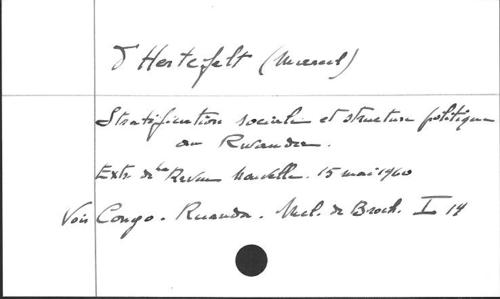 d'Hertefelt (Marcel)
Stratification sociale et structure politique
au Rwanda.
Extr. de La Revue Nouvelle. 15 mai 1960
Voir Congo. Ruanda. Mél. de Broch. I 14